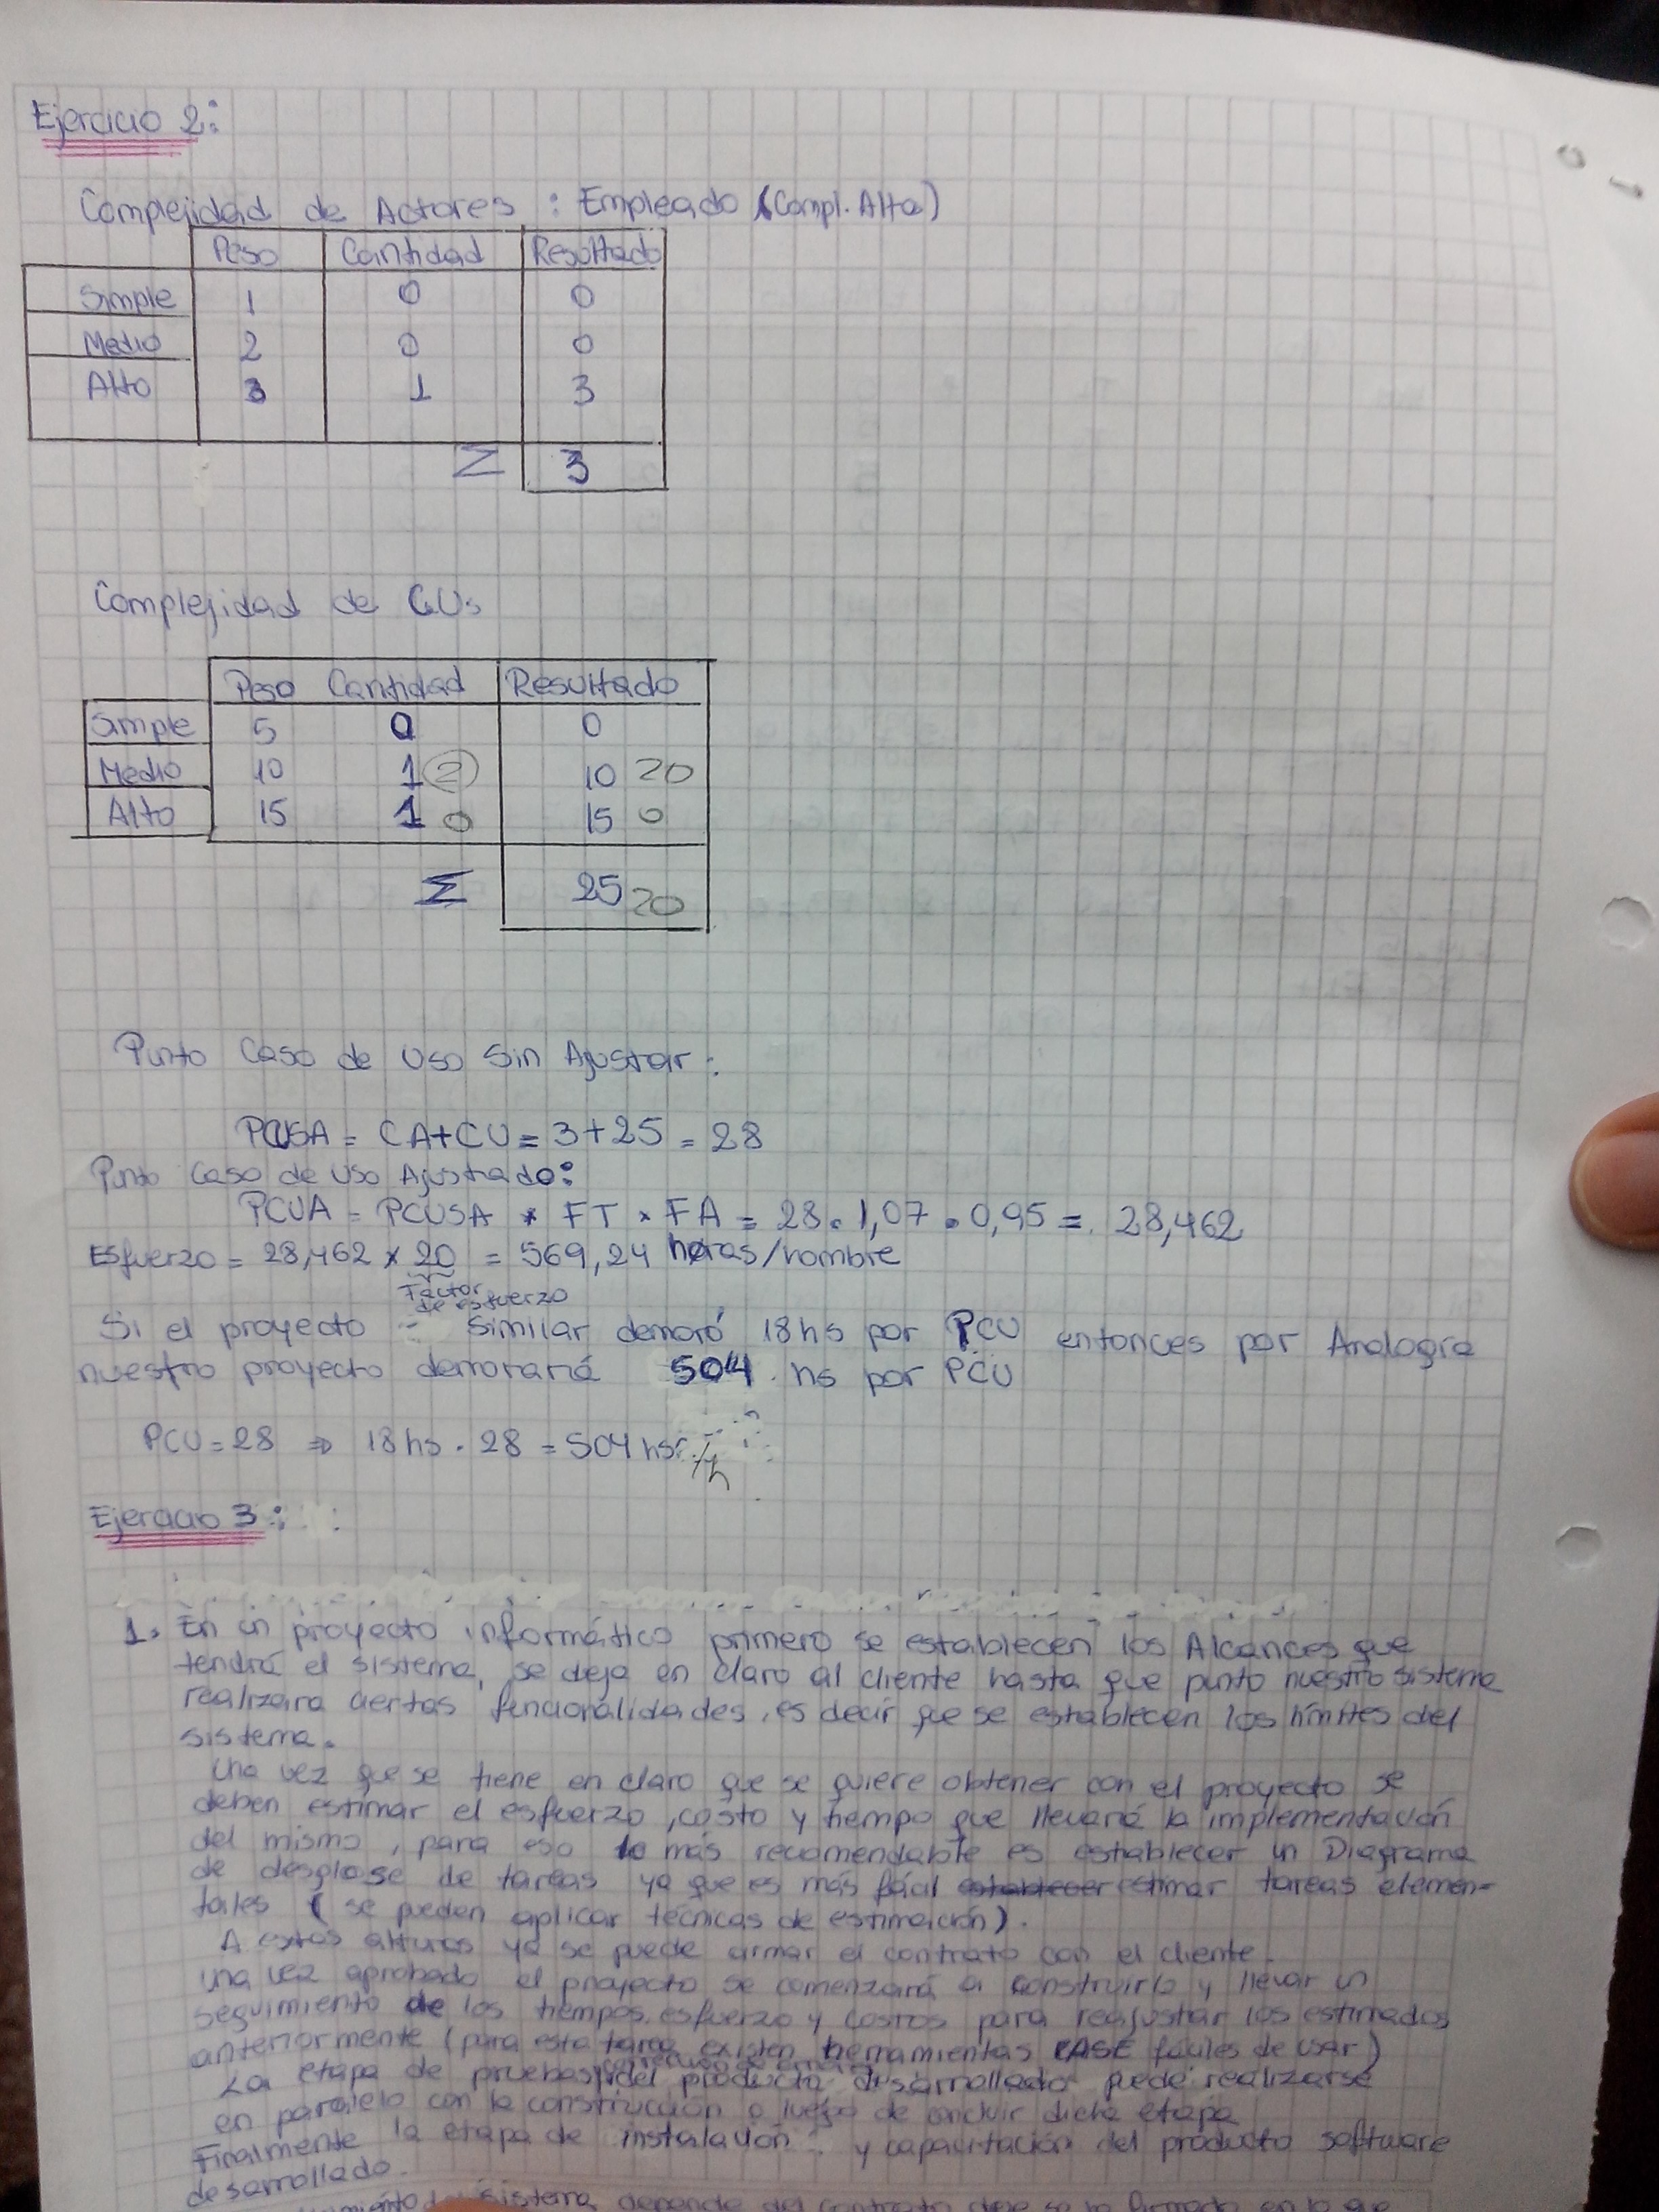 Ejercicio 2:
Complejidad de Actores : Empleado (Compl. Alta)
Peso Cantidad Resultado
Simple 1 0 0
Medio 2 0 0
Alto 3 1 3
Σ 3
Complejidad de CUs
Peso Cantidad Resultado
Simple 5 0 0
Medio 10 1 2 10 20
Alto 15 1 0 15 0
Σ 25 20
Punto Caso de Uso Sin Ajustar:
PCUSA = CA+CU = 3+25 = 28
Punto Caso de Uso Ajustado:
PCUA = PCUSA * FT * FA = 28 . 1,07 . 0,95 = 28,462
Esfuerzo = 28,462 * 20 = 569,24 horas/hombre
Factor
de esfuerzo
Si el proyecto similar demoró 18hs por PCU entonces por Analogía
nuestro proyecto demorará 504 hs por PCU
PCU = 28 ⇒ 18hs . 28 = 504 hs /h
Ejercicio 3:
1. En un proyecto informático primero se establecen los Alcances que
tendrá el sistema, se deja en claro al cliente hasta que punto nuestro sistema
realizara ciertas funcionalidades, es decir que se establecen los límites del
sistema.
Una vez que se tiene en claro que se quiere obtener con el proyecto se
deben estimar el esfuerzo, costo y tiempo que llevará la implementación
del mismo, para eso lo más recomendable es establecer un Diagrama
de desglose de tareas ya que es más fácil establecer estimar tareas elemen-
tales (se pueden aplicar técnicas de estimación).
A estas alturas ya se puede armar el contrato con el cliente.
Una vez aprobado el proyecto se comenzará a construirlo y llevar un
seguimiento de los tiempos, esfuerzo y costos para reajustar los estimados
anteriormente (para esta tarea existen herramientas CASE fáciles de usar)
corrección de errores
La etapa de pruebas y del producto desarrollado puede realizarse
en paralelo con la construcción o luego de concluir dicha etapa
Finalmente la etapa de instalación y capacitación del producto software
desarrollado.
sistema depende del contrato que se ha firmado en lo que